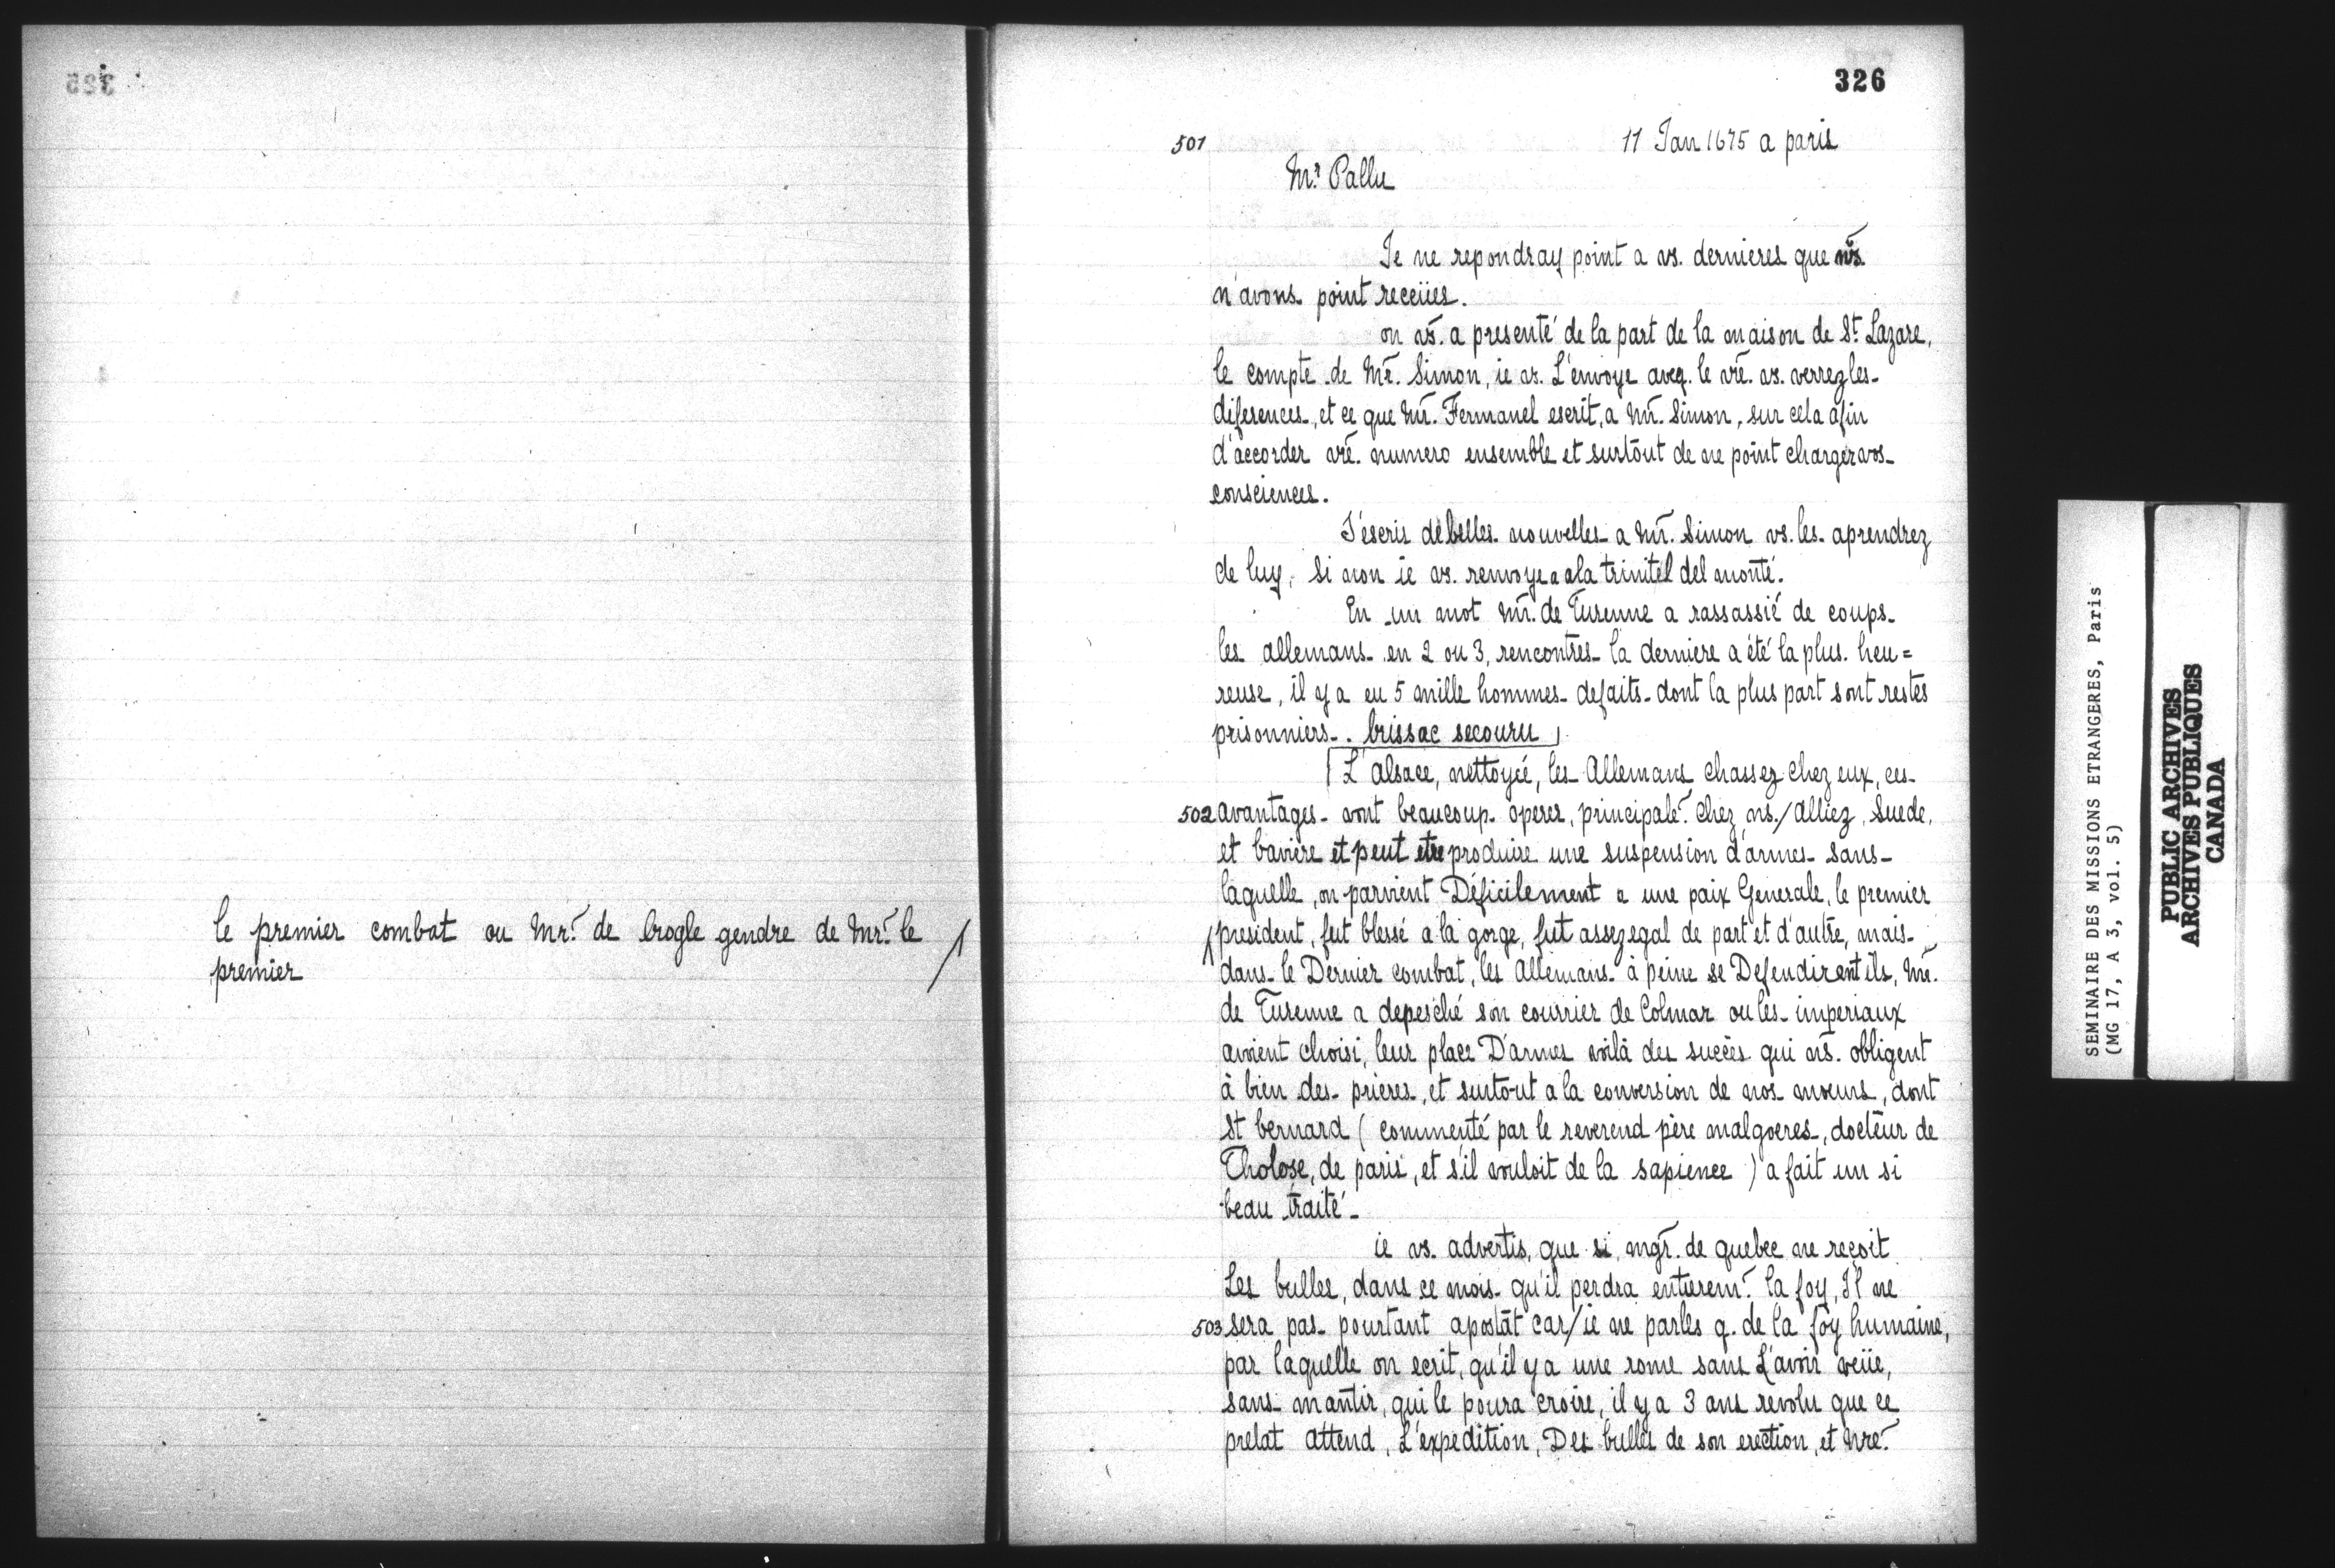 le premier combat ou Mr. de brogle gendre de Mr. le
premier
326
501
11 Jan 1675 a paris
Mr. Pallu
Je ne repondray point a vs. dernieres que ns.
n'avons point receües.
on vs. a presenté de la part de la maison de St. Lazare,
le compte de Mr. Simon, ie vs. L'envoye aveq. le vre. vs. verrez les
diferences, et ce que Mr. Fermanel escrit, a Mr. Simon, sur cela afin
d'accorder vre. numero ensemble et surtout de ne point charger vos
consciences.
J'escris de belles nouvelles a Mr. Simon vs. les aprendrez
de luy, Si non ie vs. renvoye a la trinitel del monte.
En un mot Mr. de Turenne a rassassié de coups
les allemans en 2 ou 3, rencontres la derniere a été la plus heu=
reuse, il y a eu 5 mille hommes defaits dont la plus part sont restés
prisonniers. brissac secouru
L'alsace, nettoyée, les Allemans chassez chez eux, ces
502 avantages vont beaucoup operer, principalet. chez ns./Alliez, Suede,
et baviere et peut etre produire une suspension d'armes sans
laquelle, on parvient Déficilement a une paix Generale, le premier
president, fut blessé a la gorge, fut assez egal de part et d'autre, mais
dans le Dernier combat, les Allemans à peine se Defendirent ils, Mr.
de Turenne a depesché son courrier de Colmar ou les imperiaux
avoient choisi, leur place D'armes voilà des succès qui ns. obligent
à bien des prieres, et surtout a la conversion de nos moeurs, dont
St bernard (commenté par le reverend père malgoeres, docteur de
Tholose, de paris, et s'il vouloit de la sapience) a fait un si
beau traité
ie vs. advertis, que si, mgr. de quebec ne reçoit
Les bulles, dans ce mois qu'il perdra entierem.t la foy, Il ne
503 sera pas pourtant apostàt car/ie ne parles q. de la foy humaine,
par laquelle on ecrit, qu'il y a une rome sans L'avoir veüe,
sans mantir, qui le poura croire, il y a 3 ans revolu que ce
prelat attend, L'expedition, Des bulles de son erection, et Nre.
SEMINAIRE DES MISSIONS ETRANGERES, Paris
(MG 17, A 3, vol. 5)
PUBLIC ARCHIVES
ARCHIVES PUBLIQUES
CANADA